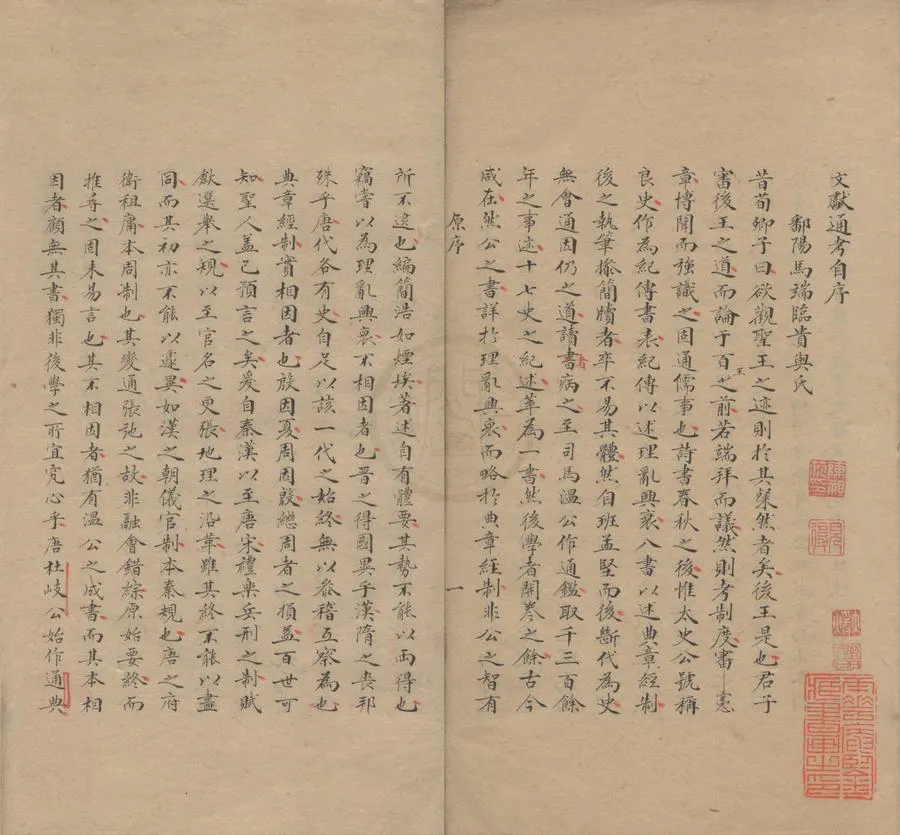 文獻通考自序
鄱陽馬端臨貴與氏
昔荀卿子曰欲觀聖王之迹則於其粲然者矣後王是也君子
審後王之道而論于百王之前若端拜而議然則考制度審憲
章博聞而強識之固通儒事也詩書春秋之後惟太史公號稱
良史作為紀傳書表紀傳以述理亂興衰八書以述典章經制
後之執筆操簡牘者卒不易其體然自班孟堅而後斷代為史
無會通因仍之道讀書者病之至司馬温公作通鑑取千三百餘
年之事迹十七史之紀述萃為一書然後學者開卷之餘古今
咸在然公之書詳於理亂興衰而略於典章經制非公之智有
原序 一
所不逮也編簡浩如煙埃著述自有體要其勢不能以兩得也
竊嘗以為理亂興衰不相因者也晋之得國異乎漢隋之喪邦
殊乎唐代各有史自足以該一代之始終無以參稽互察為也
典章經制實相因者也殷因夏周因殷繼周者之損益百世可
知聖人盖已預言之矣爰自秦漢以至唐宋禮樂兵刑之制賦
歛選舉之規以至官名之更張地理之沿革雖其終不能以盡
同而其初亦不能以遽異如漢之朝儀官制本秦規也唐之府
衛租庸本周制也其變通張弛之故非融會錯綜原始要終而
推尋之固未易言也其不相因者猶有温公之成書而其本相
因者顧無其書獨非後學之所宜究心乎唐杜岐公始作通典